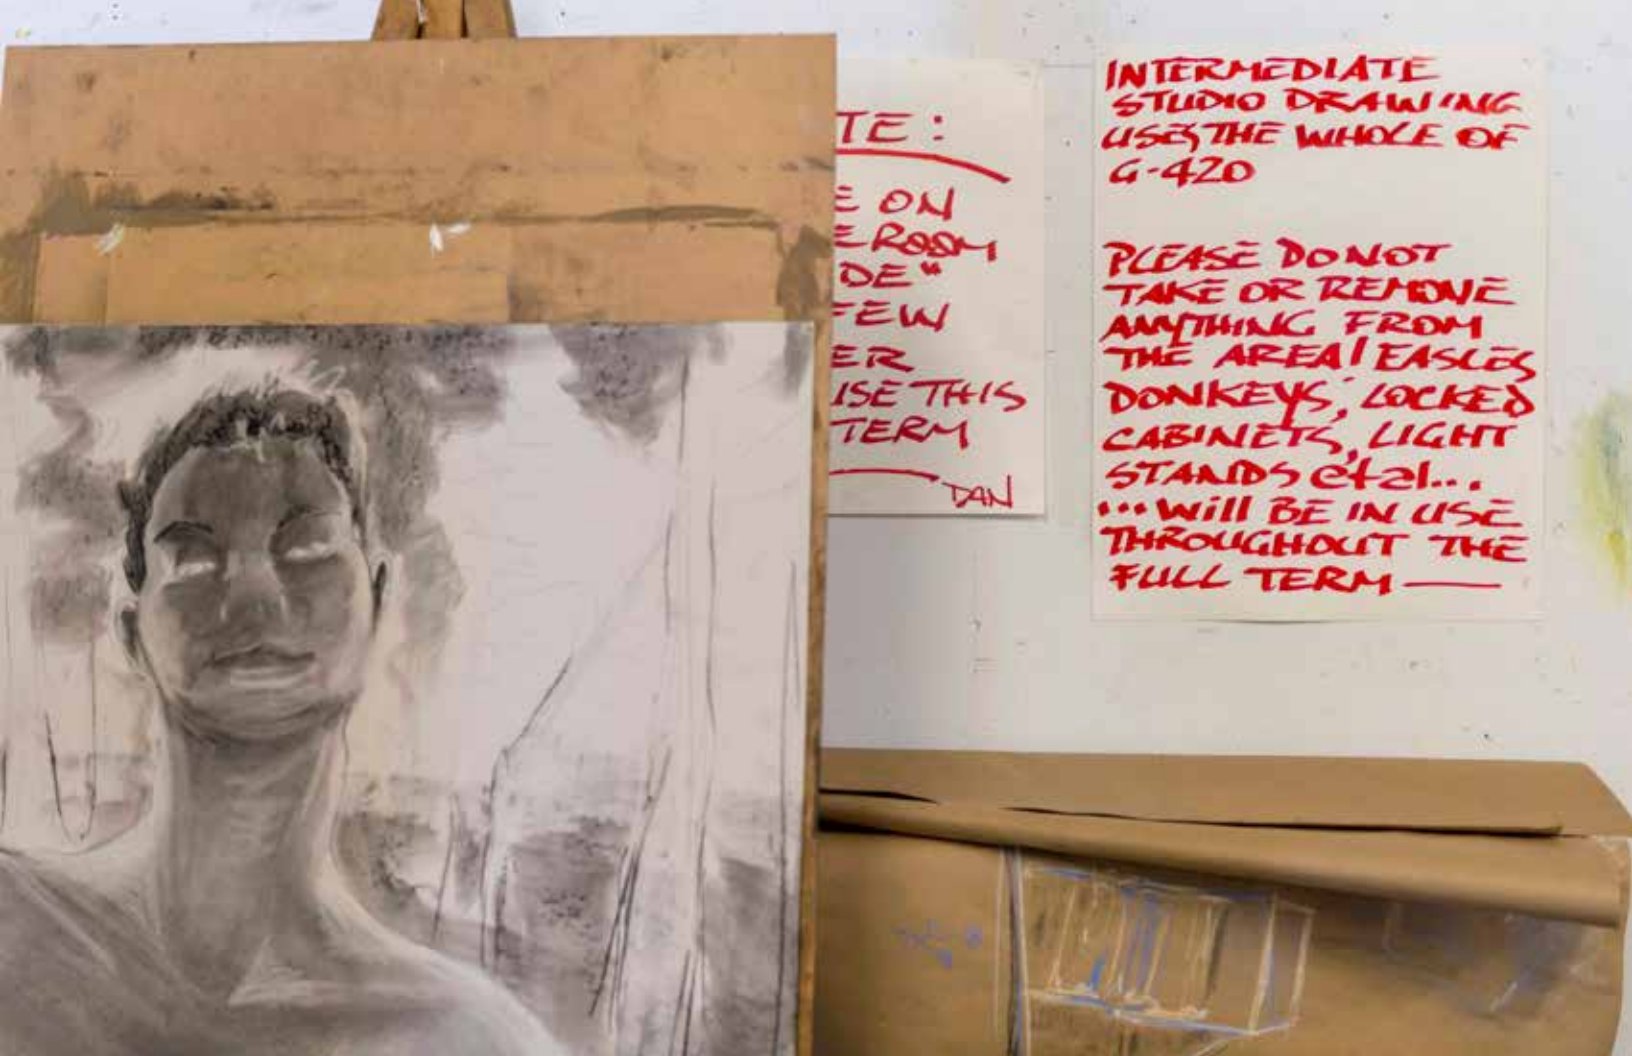 TE:
E ON
E ROOM
DE"
FEW
ER
USE THIS
TERM
DAN
INTERMEDIATE
STUDIO DRAWING
USES THE WHOLE OF
G-420
PLEASE DO NOT
TAKE OR REMOVE
ANYTHING FROM
THE AREA! EASLES
DONKEYS, LOCKED
CABINETS, LIGHT
STANDS et al...
...Will BE IN USE
THROUGHOUT THE
FULL TERM —